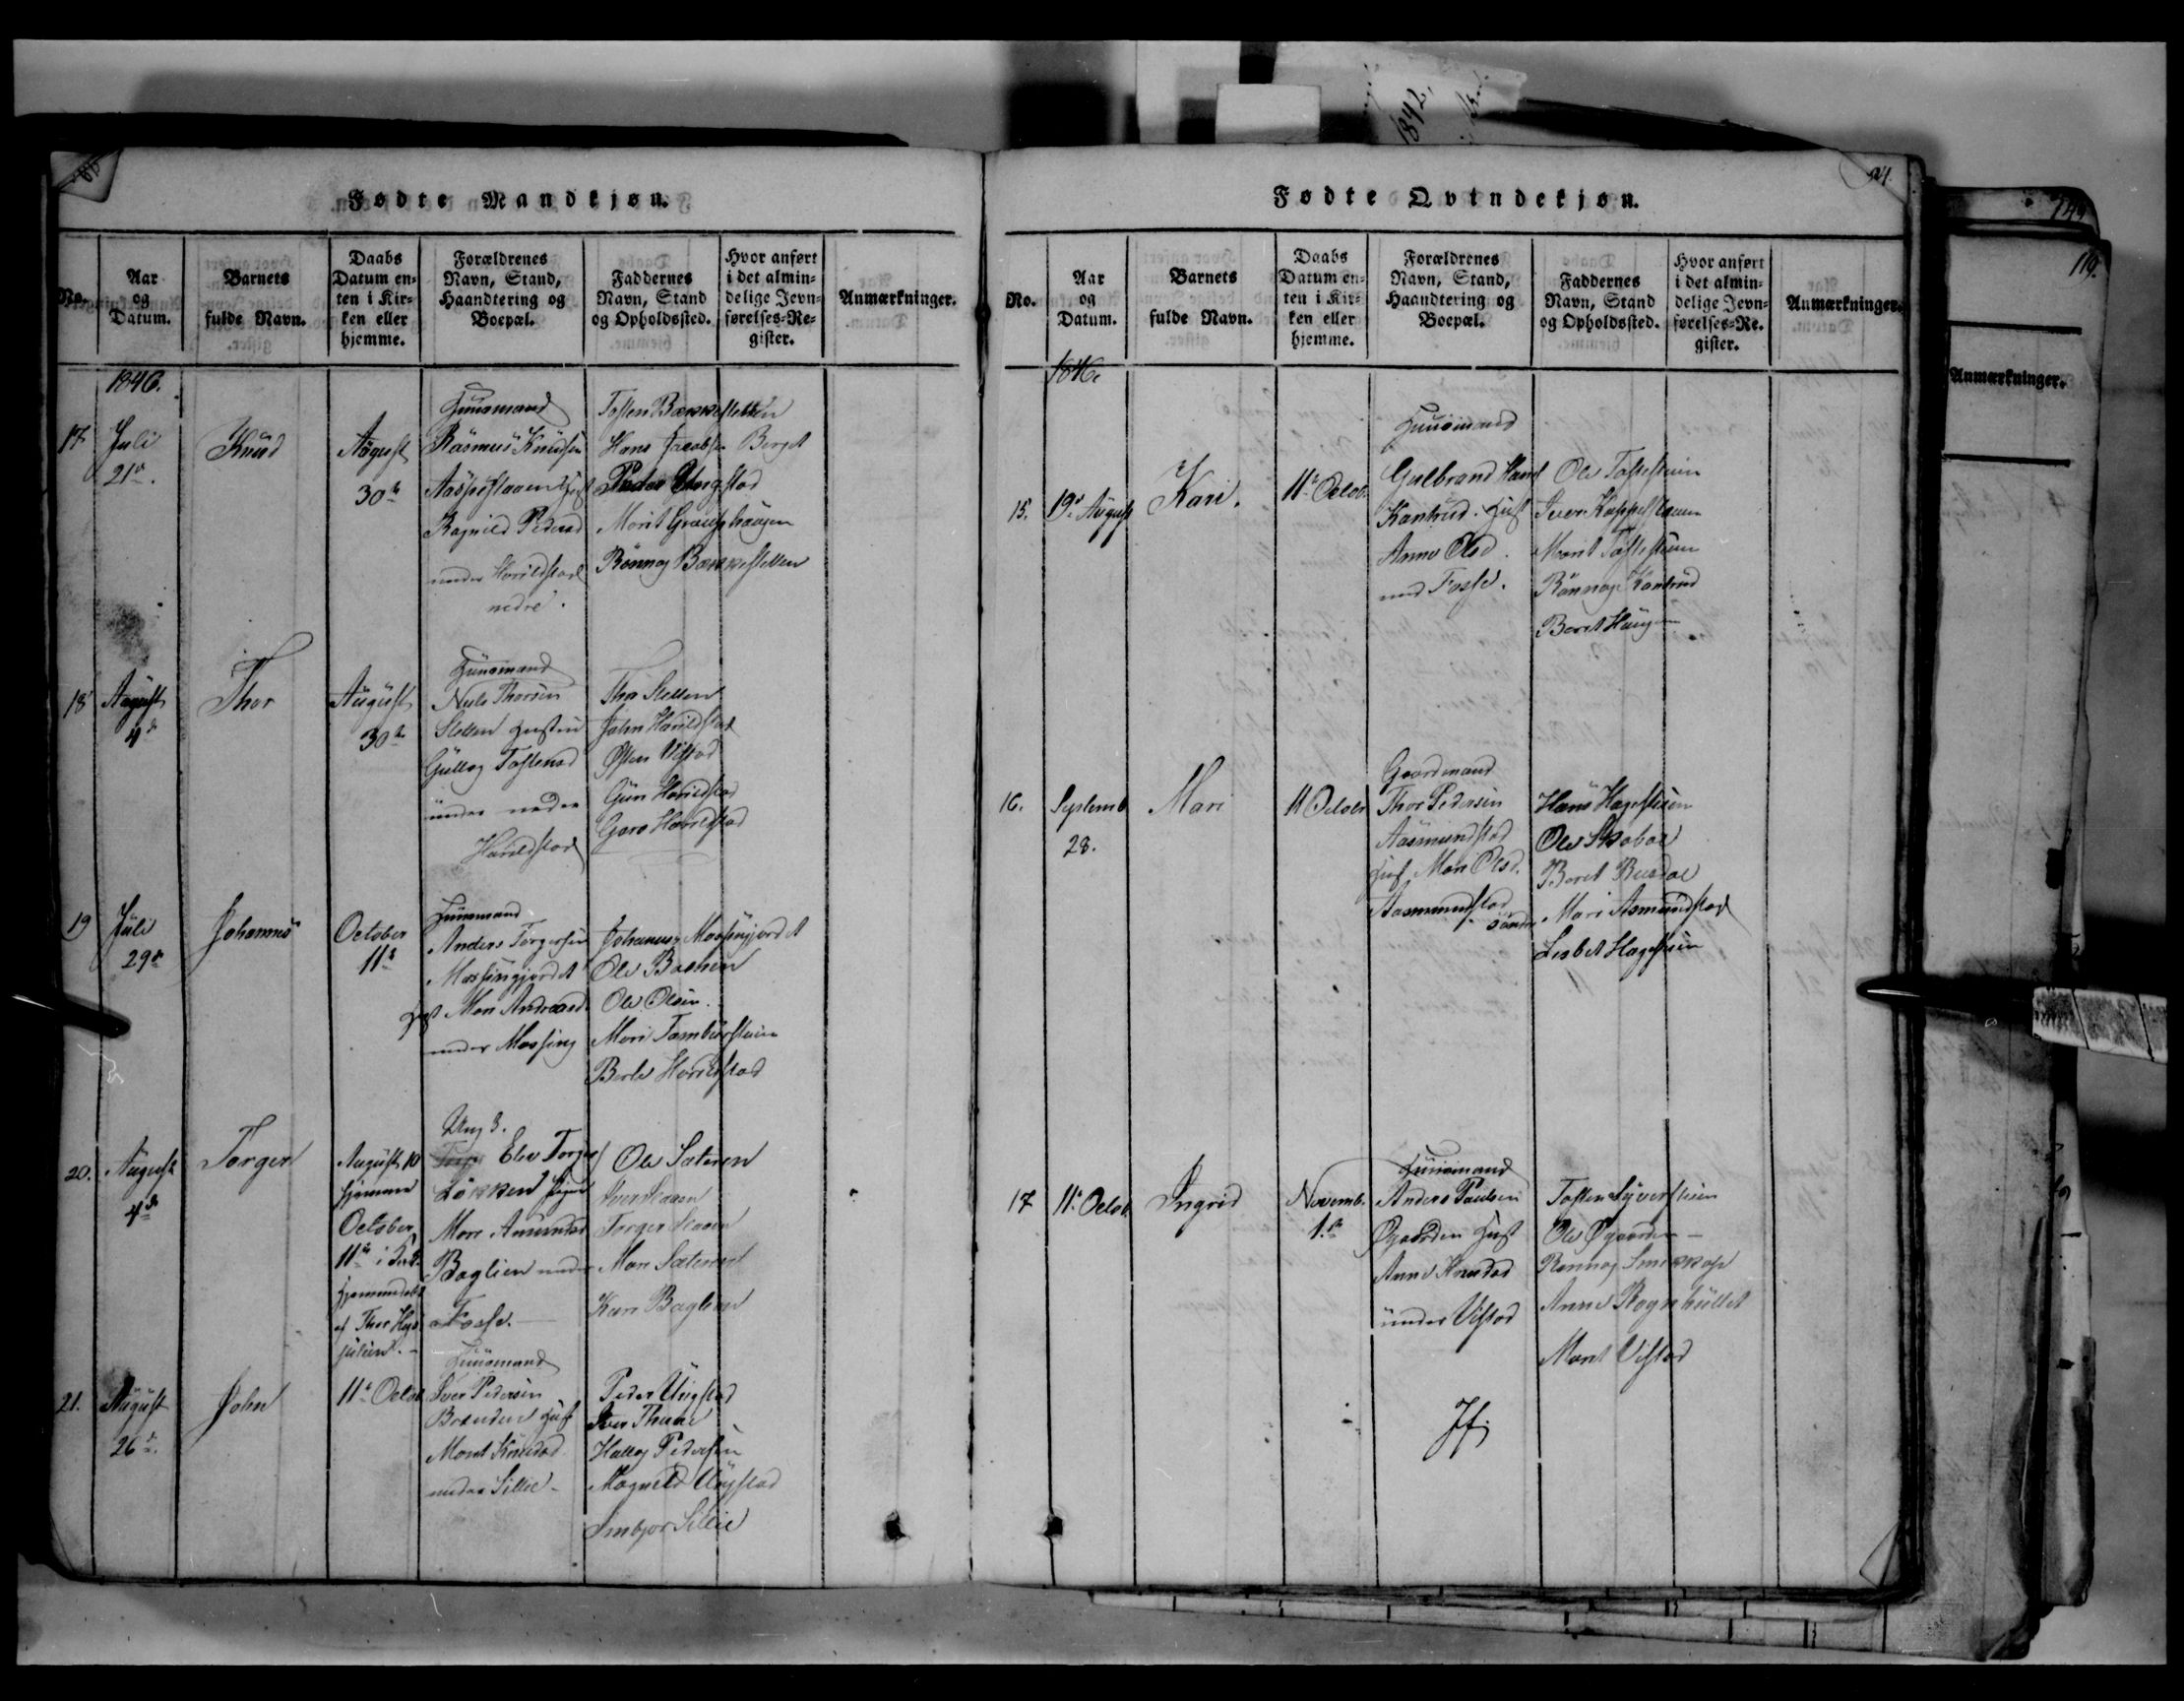 Fødte Mandkjøn.
No.
Aar
og
Datum.
Barnets
fulde Navn.
Daabs
Datum en-
ten i Kir-
ken eller
hjemme.
Forældrenes
Navn, Stand,
Haandtering og
Boepæl.
Faddernes
Navn, Stand
og Opholdssted.
Hvor anført
i det almin-
delige Jevn-
førelses-Re-
gister.
Anmærkninger.
1846.
17
Juli
21de.
Knud
August
30te
Huusmand
Rasmus Knudsen
Hust
Ragnild Pedersd
under Harildstad
nedre.
Tosten Bakkestetten
Hans Jacobsen Berget
Peder Ungstad
Marit
Rönnog Bakkestetten
18
August
4de
Thor
August
30te
Huusmand
Niels Thorsen
Sletten Hustru
Gullog Tostensd
under nedre
Harildstad
Thor Sletten
John Harildstad
Østen Vistad
Guri Harildstad
Goro Harildstad
19
Juli
29de
Johannes
October
11te
Huusmand
Anders Torgersen
Massingjordet
Hust Mari Andersd.
under Massing
Johannes Massingjordet
Ole Bakken
Ole Olsen
Mari Tamburstuen
Berte Harildstad
20.
August
4de
Torger
August 10
hjemme
October
11te i Kirk.
Hjemmedøbt
af Thor
Ung K.
Elev Torgers
Løkken Pige
Mari Amundsd
Baglien under
Fosse.
Ole Sæteren
Iver Slaaen
Torger Slaaen
Mari Sæteren
Kari Baglien
21.
August
26de.
John
11te Octob.
Huusmand
Iver Pedersen
Brænden Hust
Marit Knudsd
under Sillie
Peder Ungstad
Iver Thune
Hallog Pedersen
Magnild Ungstad
Simbjør Sillie
Fødte Qvindekjøn.
24.
No.
Aar
og
Datum.
Barnets
fulde Navn.
Daabs
Datum en-
ten i Kir-
ken eller
hjemme.
Forældrenes
Navn, Stand,
Haandtering og
Boepæl.
Faddernes
Navn, Stand
og Opholdssted.
Hvor anført
i det almin-
delige Jevn-
førelses-Re-
gister.
Anmærkninger.
1846.
15.
19de August
Kari.
11te Octob.
Huusmand
Gulbrand Hans
Kanhud. Hust
Anne Olsd.
und Fosse.
Ole Toftestuen
Iver
Marit Toftestuen
Rönnog Kanhud
Berit Haugen
16.
Septemb
28.
Mari
11 Octobr
Gaardmand
Thor Pedersen
Aasmundstad
Hust Mari Olsd.
Aasmundstad
söndre
Hans Hagestuen
Ole Skabae
Berit Rusdal
Mari Asmundstad
Lisbet Hagestuen
17
11te Octob.
Ingrid
Novemb.
1ste
Huusmand
Anders Paulsen
Øgaarden Hust
Anne Knudsd
under Vistad
Tosten Syverstuen
Ole Øgaarden
Rannog
Anne Rognhullet
Marit Vistad
119.
Anmærkninger.
1842,